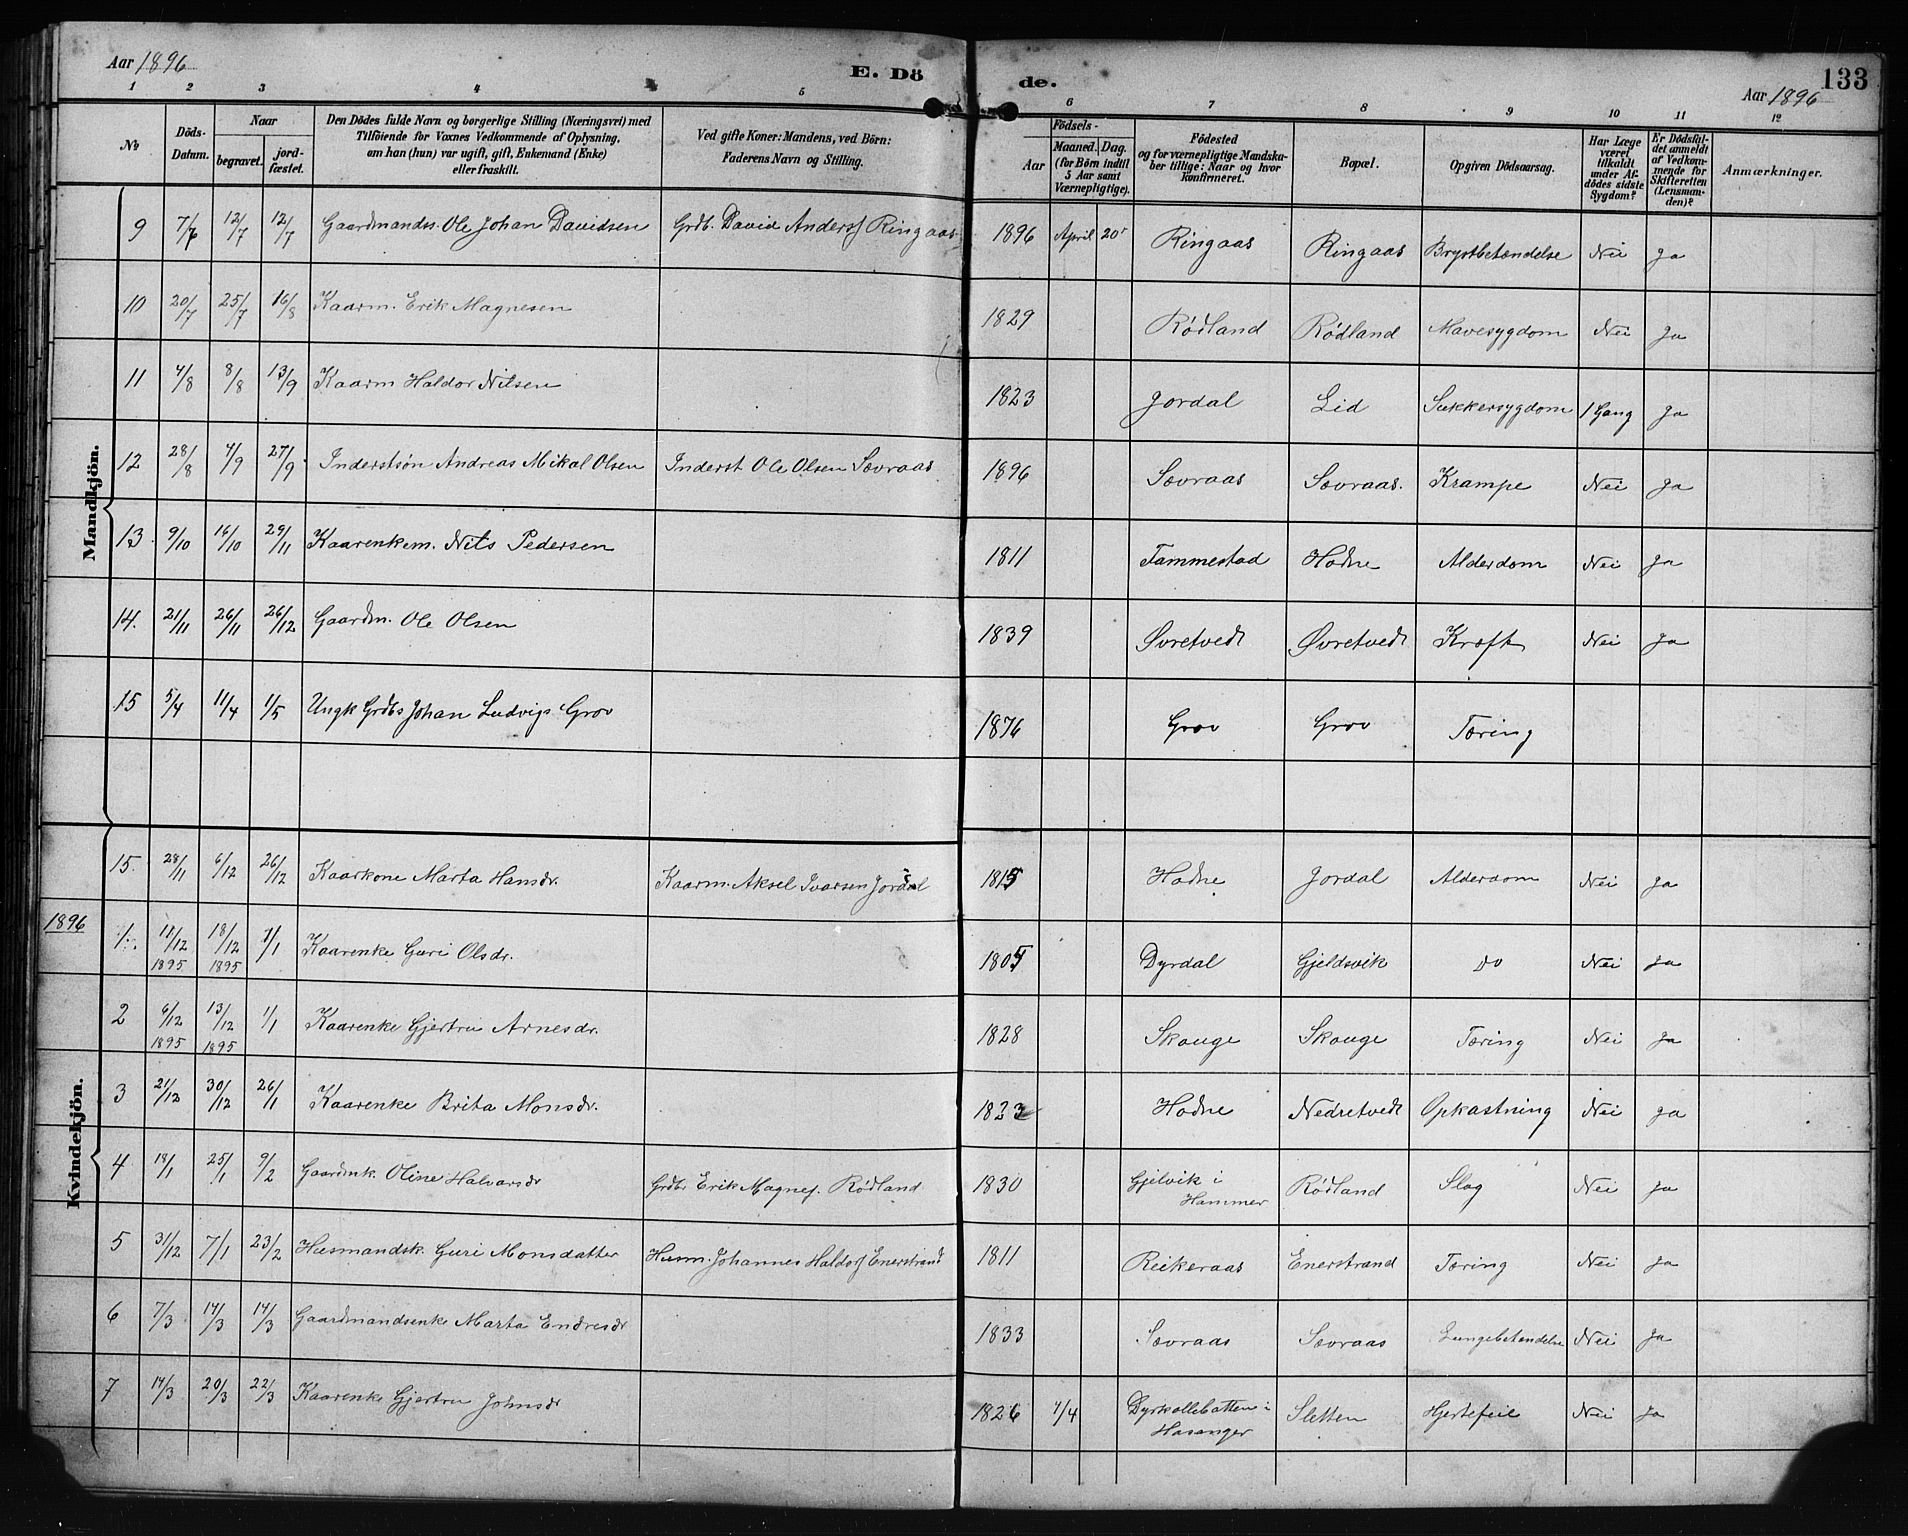 Aar 1896 E. Dö de. 133
Aar 1896
1 2 3 4 5 6 7 8 9 10 11 12
No
Döds-Datum.
Naar
begravet.
jord-fæstet.
Den Dödes fulde Navn og borgerlige Stilling (Næringsvei) med
Tilföiende for Voxnes Vedkommende af Oplysning,
om han (hun) var ugift, gift, Enkemand (Enke)
eller fraskilt.
Ved gifte Koner: Mandens, ved Börn:
Faderens Navn og Stilling.
Födsels-
Aar
Maaned. Dag.
(for Börn indtil
5 Aar samt
Værnepligtige).
Födested
og for værnepligtige Mandska-
ber tillige: Naar og hvor
konfirmeret.
Bopæl.
Opgiven Dödsaarsag.
Har Læge
været
tilkaldt
under Af-
dödes sidste
Sygdom?
Er Dödsfal-
det anmeldt
af Vedkom-
mende for
Skifteretten
(Lensman-
den)?
Anmærkninger.
Mandkjön.
9 7/6 12/7 12/7 Gaardmandss. Ole Johan Davidsen Grdb. David Anders. Ringaas 1896 April 20 Ringaas Ringaas Brystbetændelse Nei Ja
10 20/7 25/7 16/8 Kaarm. Erik Magnesen 1829 Rødland Rødland Mavesygdom Nei Ja
11 4/8 8/8 13/9 Kaarm Haldor Nilsen 1823 Jordal Lid Sukkersygdom 1 Gang Ja
12 28/8 4/9 27/9 Inderstsøn Andreas Mikal Olsen Inderst Ole Olsen Sævraas 1896 Sævraas Sævraas. Krampe Nei Ja
13. 9/10 16/10 29/11 Kaarenkem. Nils Pedersen 1811 Tammestad Hodne Alderdom Nei Ja
14. 21/11 26/11 26/12 Gaardm. Ole Olsen 1839 Øvretvedt Øvretvedt Kræft Nei Ja
15 5/4 11/4 1/5 Ungk Grdbs Johan Ludvigs Grov 1876 Grov Grov Tæring
Kvindekjön.
15. 28/11 6/12 26/12 Kaarkone Marta Hansdr. Kaarm. Aksel Ivarsen Jordal 1815 Hodne Jordal Alderdom Nei Ja
1896
1. 11/12 1895 18/12 1895 1/1 Kaarenke Guri Olsdr. 1805 Dyrdal Gjeldsvik Do Nei Ja
2 6/12 1895 13/12 1895 1/1 Kaarenke Gjertru Arnesdr. 1828 Skauge Skauge Tæring Nei Ja
3 21/12 30/12 26/1 Kaarenke Brita Monsdr. 1823 Hodne Nedretvedt Opkastning Nei Ja
4 18/1 25/1 9/2 Gaardmk. Oline Halvorsdr Grdbr Erik Magnes. Rødland 1830 Gjelvik i Hammer Rødland Slag Nei Ja
5 31/12 7/1 23/2 Husmandsk. Guri Monsdatter Husm. Johannes Haldors. Enerstrand 1811 Reikeraas Enerstrand Tæring Nei Ja
6 7/3 14/3 14/3 Gaardmandsenke Marta Endresdr 1833 Sævraas Sævraas Lungebetændelse Nei Ja
7 14/3 20/3 22/3 Kaarenke Gjertru Johnsdr 1826 7/4 Dyrkollebotten i Hosanger Sletten Hjertefeil Nei Ja